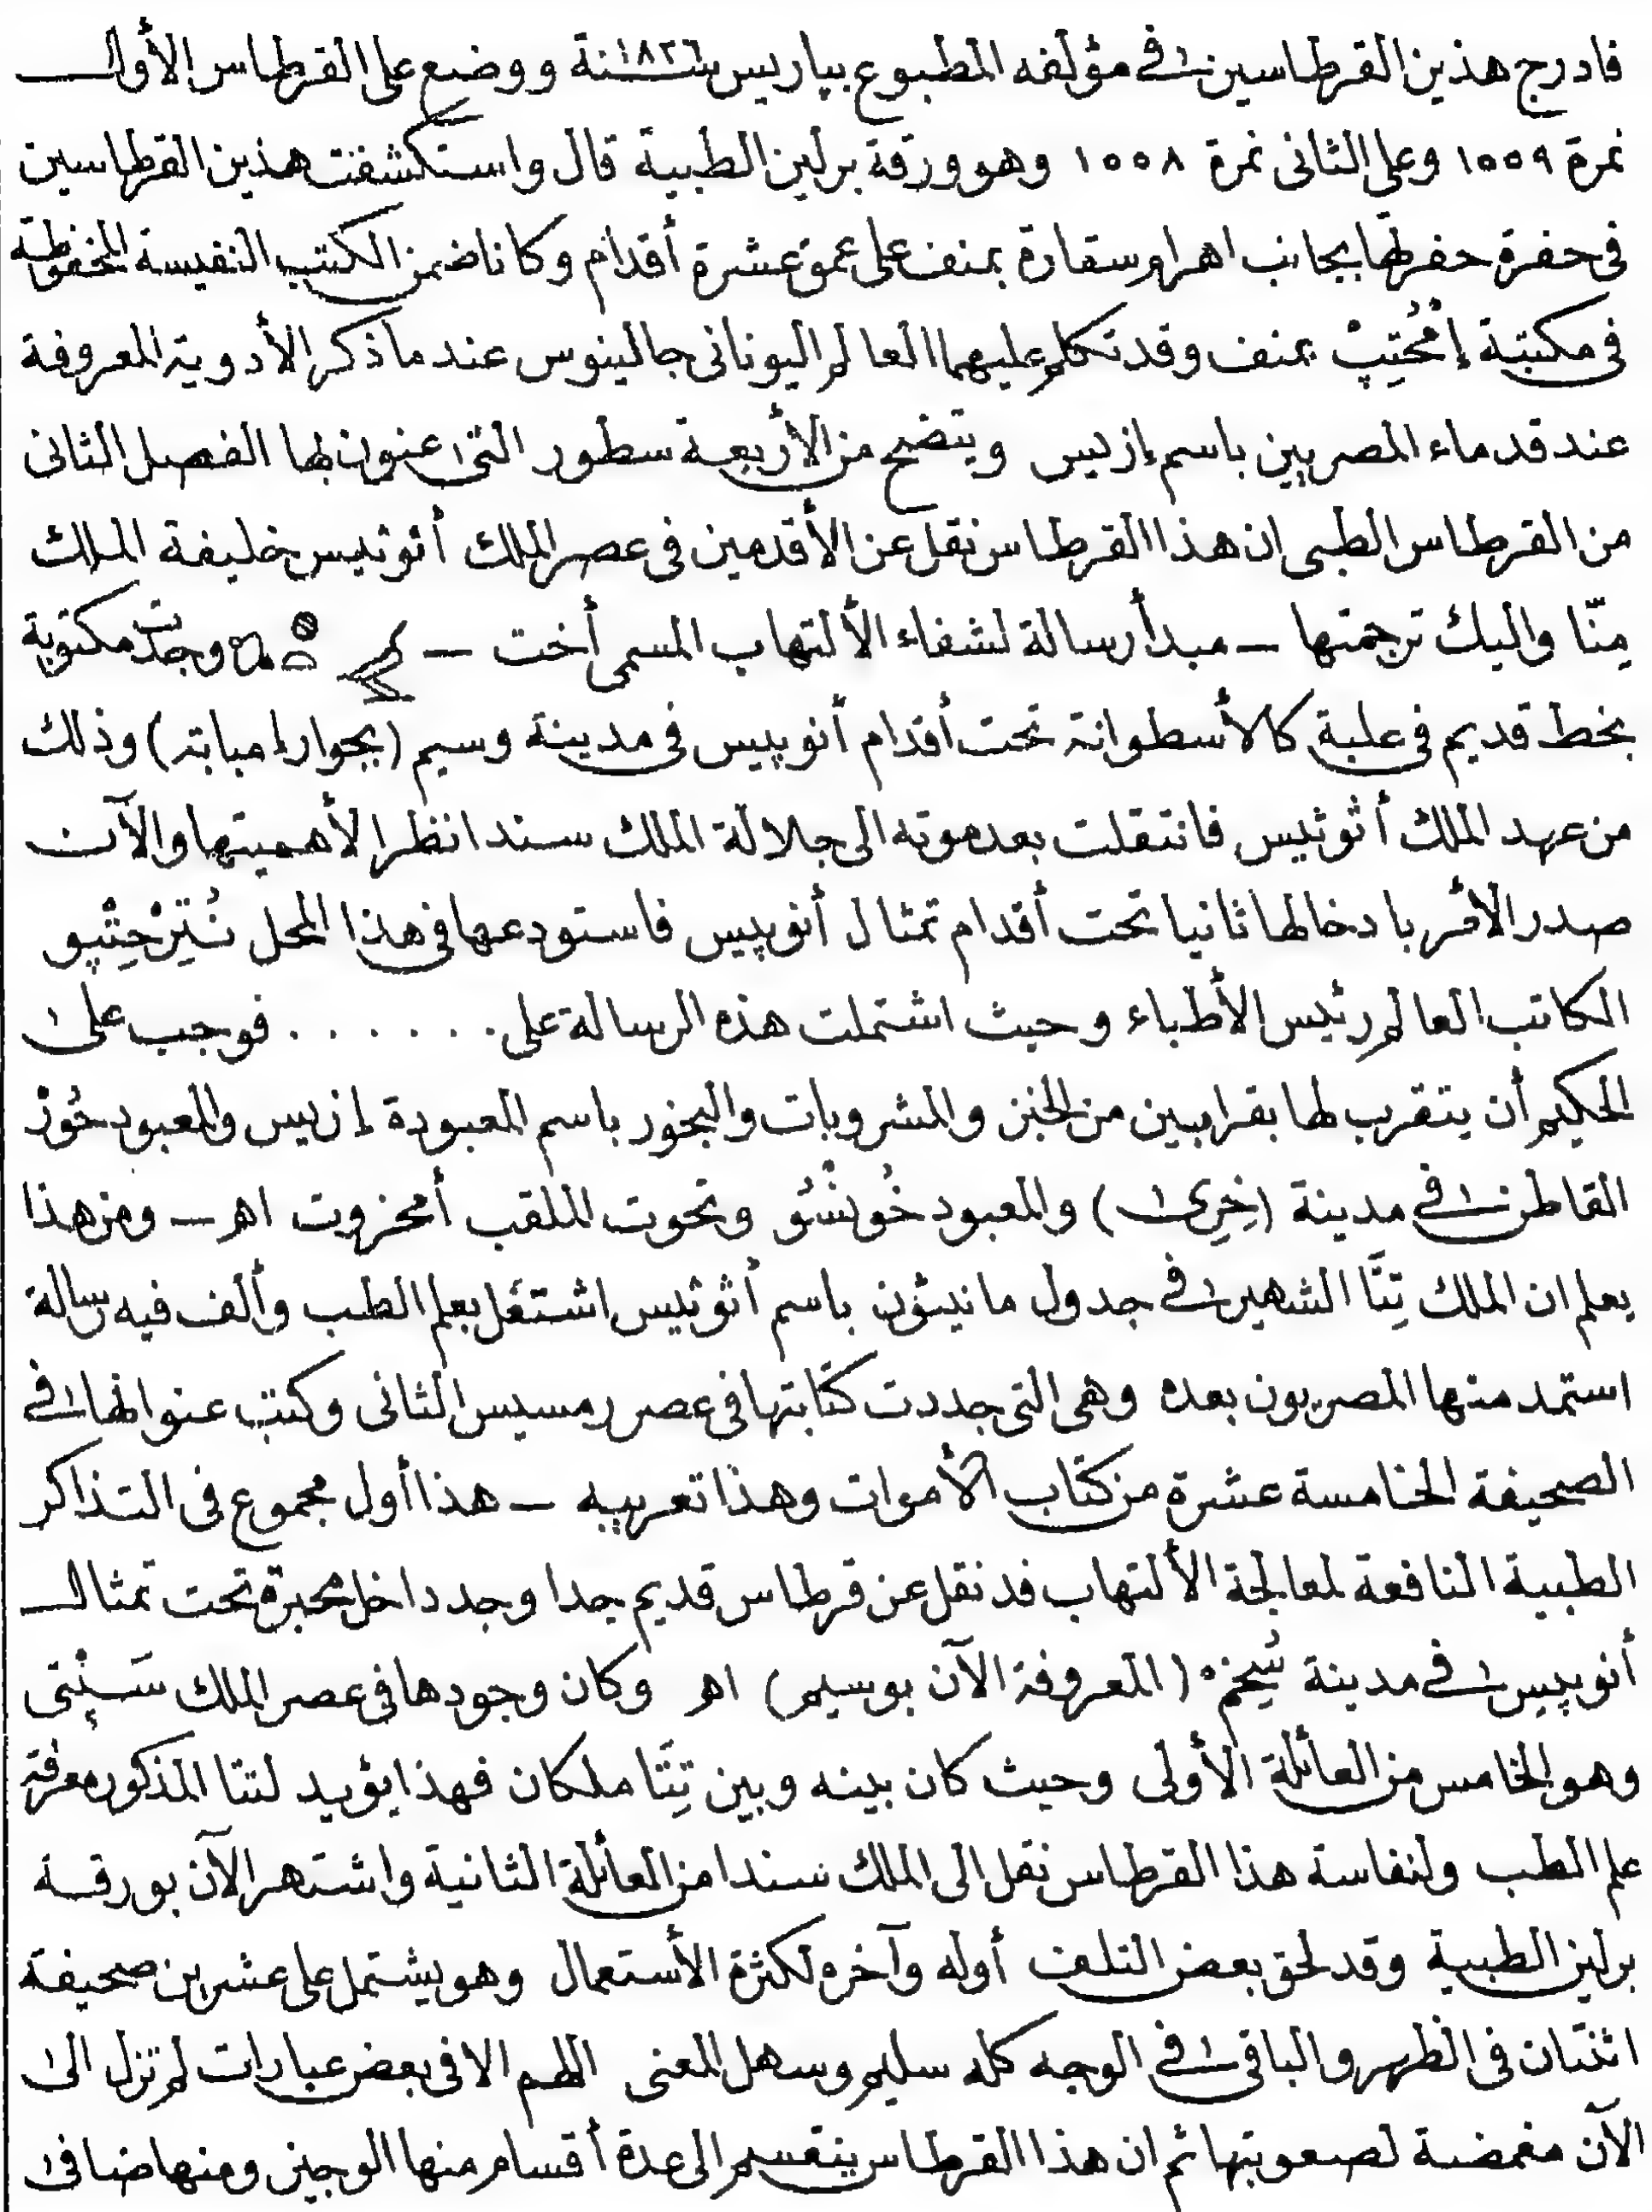 فادرج هذين القرطاسين فى مؤلفه المطبوع بپاريس سنة ١٨٢٦ ووضع على القرطاس الأول
نمرة ١٥٥٩ وعلى الثانى نمرة ١٥٥٨ وهو ورقة برلين الطبية قال واستكشفت هذين القرطاسين
فى حفرة حفرتها بجانب اهرام سقارة بمنف على عمق عشرة أقدام وكانا ضمن الكتب النفيسة المحفوظة
فى مكتبة إمْحُتِپْ بمنف وقد تكلم عليهما العالم اليونانى جالينوس عند ما ذكر الأدوية المعروفة
عند قدماء المصريين باسم إزيس ويتضح من الأربعة سطور التى عنون لها الفصل الثانى
من القرطاس الطبى ان هذا القرطاس نقل عن الأقدمين فى عصر الملك أثوثيس خليفة الملك
مِنّا واليك ترجمتها ــ مبدأ رسالة لشفاء الألتهاب المسمى أخت ــ وجدت مكتوبة
بخط قديم فى علبة كالأسطوانة تحت أقدام أنوبيس فى مدينة وسيم (بجوار إمبابة) وذلك
من عهد الملك أثوثيس فانتقلت بعد موته الى جلالة الملك سندا نظرا لأهميتها والآن
صدر الأمر بادخالها ثانيا تحت أقدام تمثال أنوبيس فاستودعها فى هذا المحل نُتِرْحِتْپو
الكاتب العالم رئيس الأطباء وحيث اشتملت هذه الرسالة على . . . . . . فوجب على
الحكيم أن يتقرب لها بقرابين من الخبز والمشروبات والبخور باسم المعبودة إزيس والمعبود حُورْ
القاطن فى مدينة (خِرِى) والمعبود خُونْسُو وتحوت الملقب أمخروت اهـ ــ ومن هذا
يعلم ان الملك تِتَّا الشهير فى جدول مانيثون باسم أثوثيس اشتغل بعلم الطب وألف فيه رسالة
استمد منها المصريون بعده وهى التى جددت كتابتها فى عصر رمسيس الثانى وكتب عنوانها فى
الصحيفة الخامسة عشرة من كتاب الأموات وهذا تعريبه ــ هذا أول مجموع فى التذاكر
الطبية النافعة لمعالجة الألتهاب قد نقل عن قرطاس قديم جدا وجد داخل محبرة تحت تمثال
أنوبيس فى مدينة سُخِم (المعروفة الآن بوسيم) اهـ وكان وجودها فى عصر الملك سَپْتِى
وهو الخامس من العائلة الأولى وحيث كان بينه وبين تِتَّا ملكان فهذا يؤيد لتتا المذكور معرفة
علم الطب ولنفاسة هذا القرطاس نقل الى الملك سندا من العائلة الثانية واشتهر الآن بورقة
برلين الطبية وقد لحق بعض التلف أوله وآخره لكثرة الأستعمال وهو يشتمل على عشرين صحيفة
اثنتان فى الظهر والباقى فى الوجه كله سليم وسهل المعنى اللهم الا فى بعض عبارات لم تزل الى
الآن مغمضة لصعوبتها ثم ان هذا القرطاس ينقسم الى عدة أقسام منها الوجيز ومنها ضافى